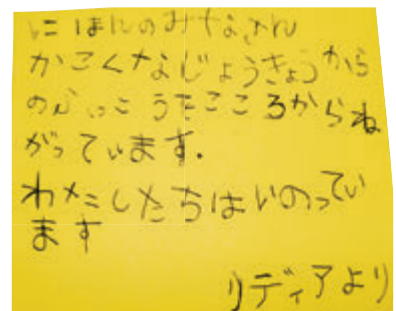 にほんのみなさん
かこくなじょうきょうから
のふっこうをこころからね
がっています.
わたしたちはいのってい
ます
リディアより